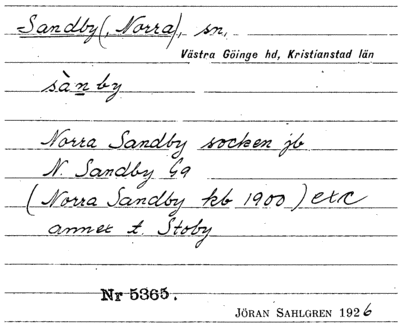 Sandby (, Norra), sn,
Västra Göinge hd, Kristianstad län
sànby
Norra Sandby socken jb
N. Sandby G9
(Norra Sandby kb 1900) etc
annex t. Stoby
Nr 5365.
JÖRAN SAHLGREN 1926